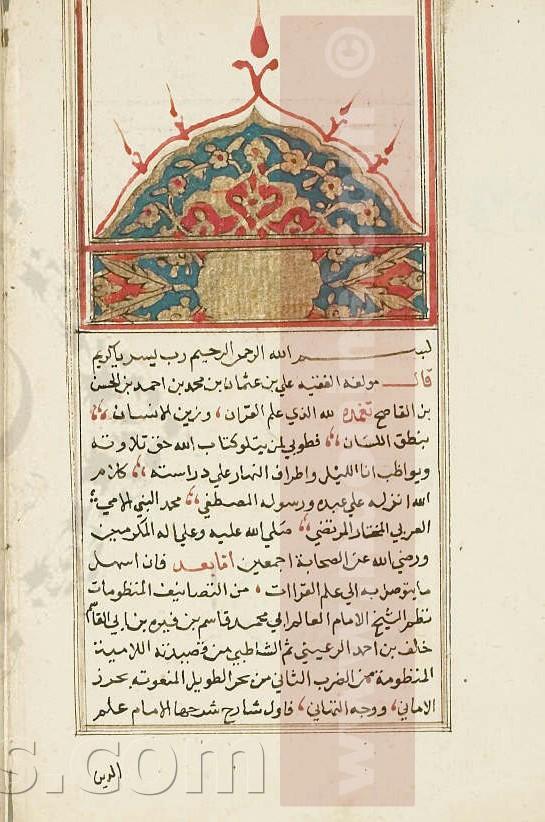 بسم الله الرحمن الرحيم رب يسر ياكريم
قال مولفه الفقيه علي بن عثمان بن محمد بن احمد بن الحسن
بن القاصح الحمد لله الذي علم القران وزين الانسان
بنطق اللسان فطوبي لمن يتلو كتاب الله حق تلاوته
ويواظب انا الليل واطراف النهار علي دراسته كلام
الله انزله علي عبده ورسوله المصطفي محمد النبي الامي
العربي المختار المرتضي صلي الله عليه وعلي اله المكرمين
ورضي الله عن الصحابة اجمعين اما بعد فان اسهل
ما يتوصل به الي علم القراات من التصانيف المنظومات
نظم الشيخ الامام العالم ابي محمد قاسم بن فيره بن ابي القاسم
خالف بن احمد الرعيني ثم الشاطبي من قصيدته اللامية
المنظومة من الضرب الثاني من بحر الطويل المنعوته بحرز
الاماني ووجه التهاني فاول شارح شرحها الامام علم
الدين
s.com
©